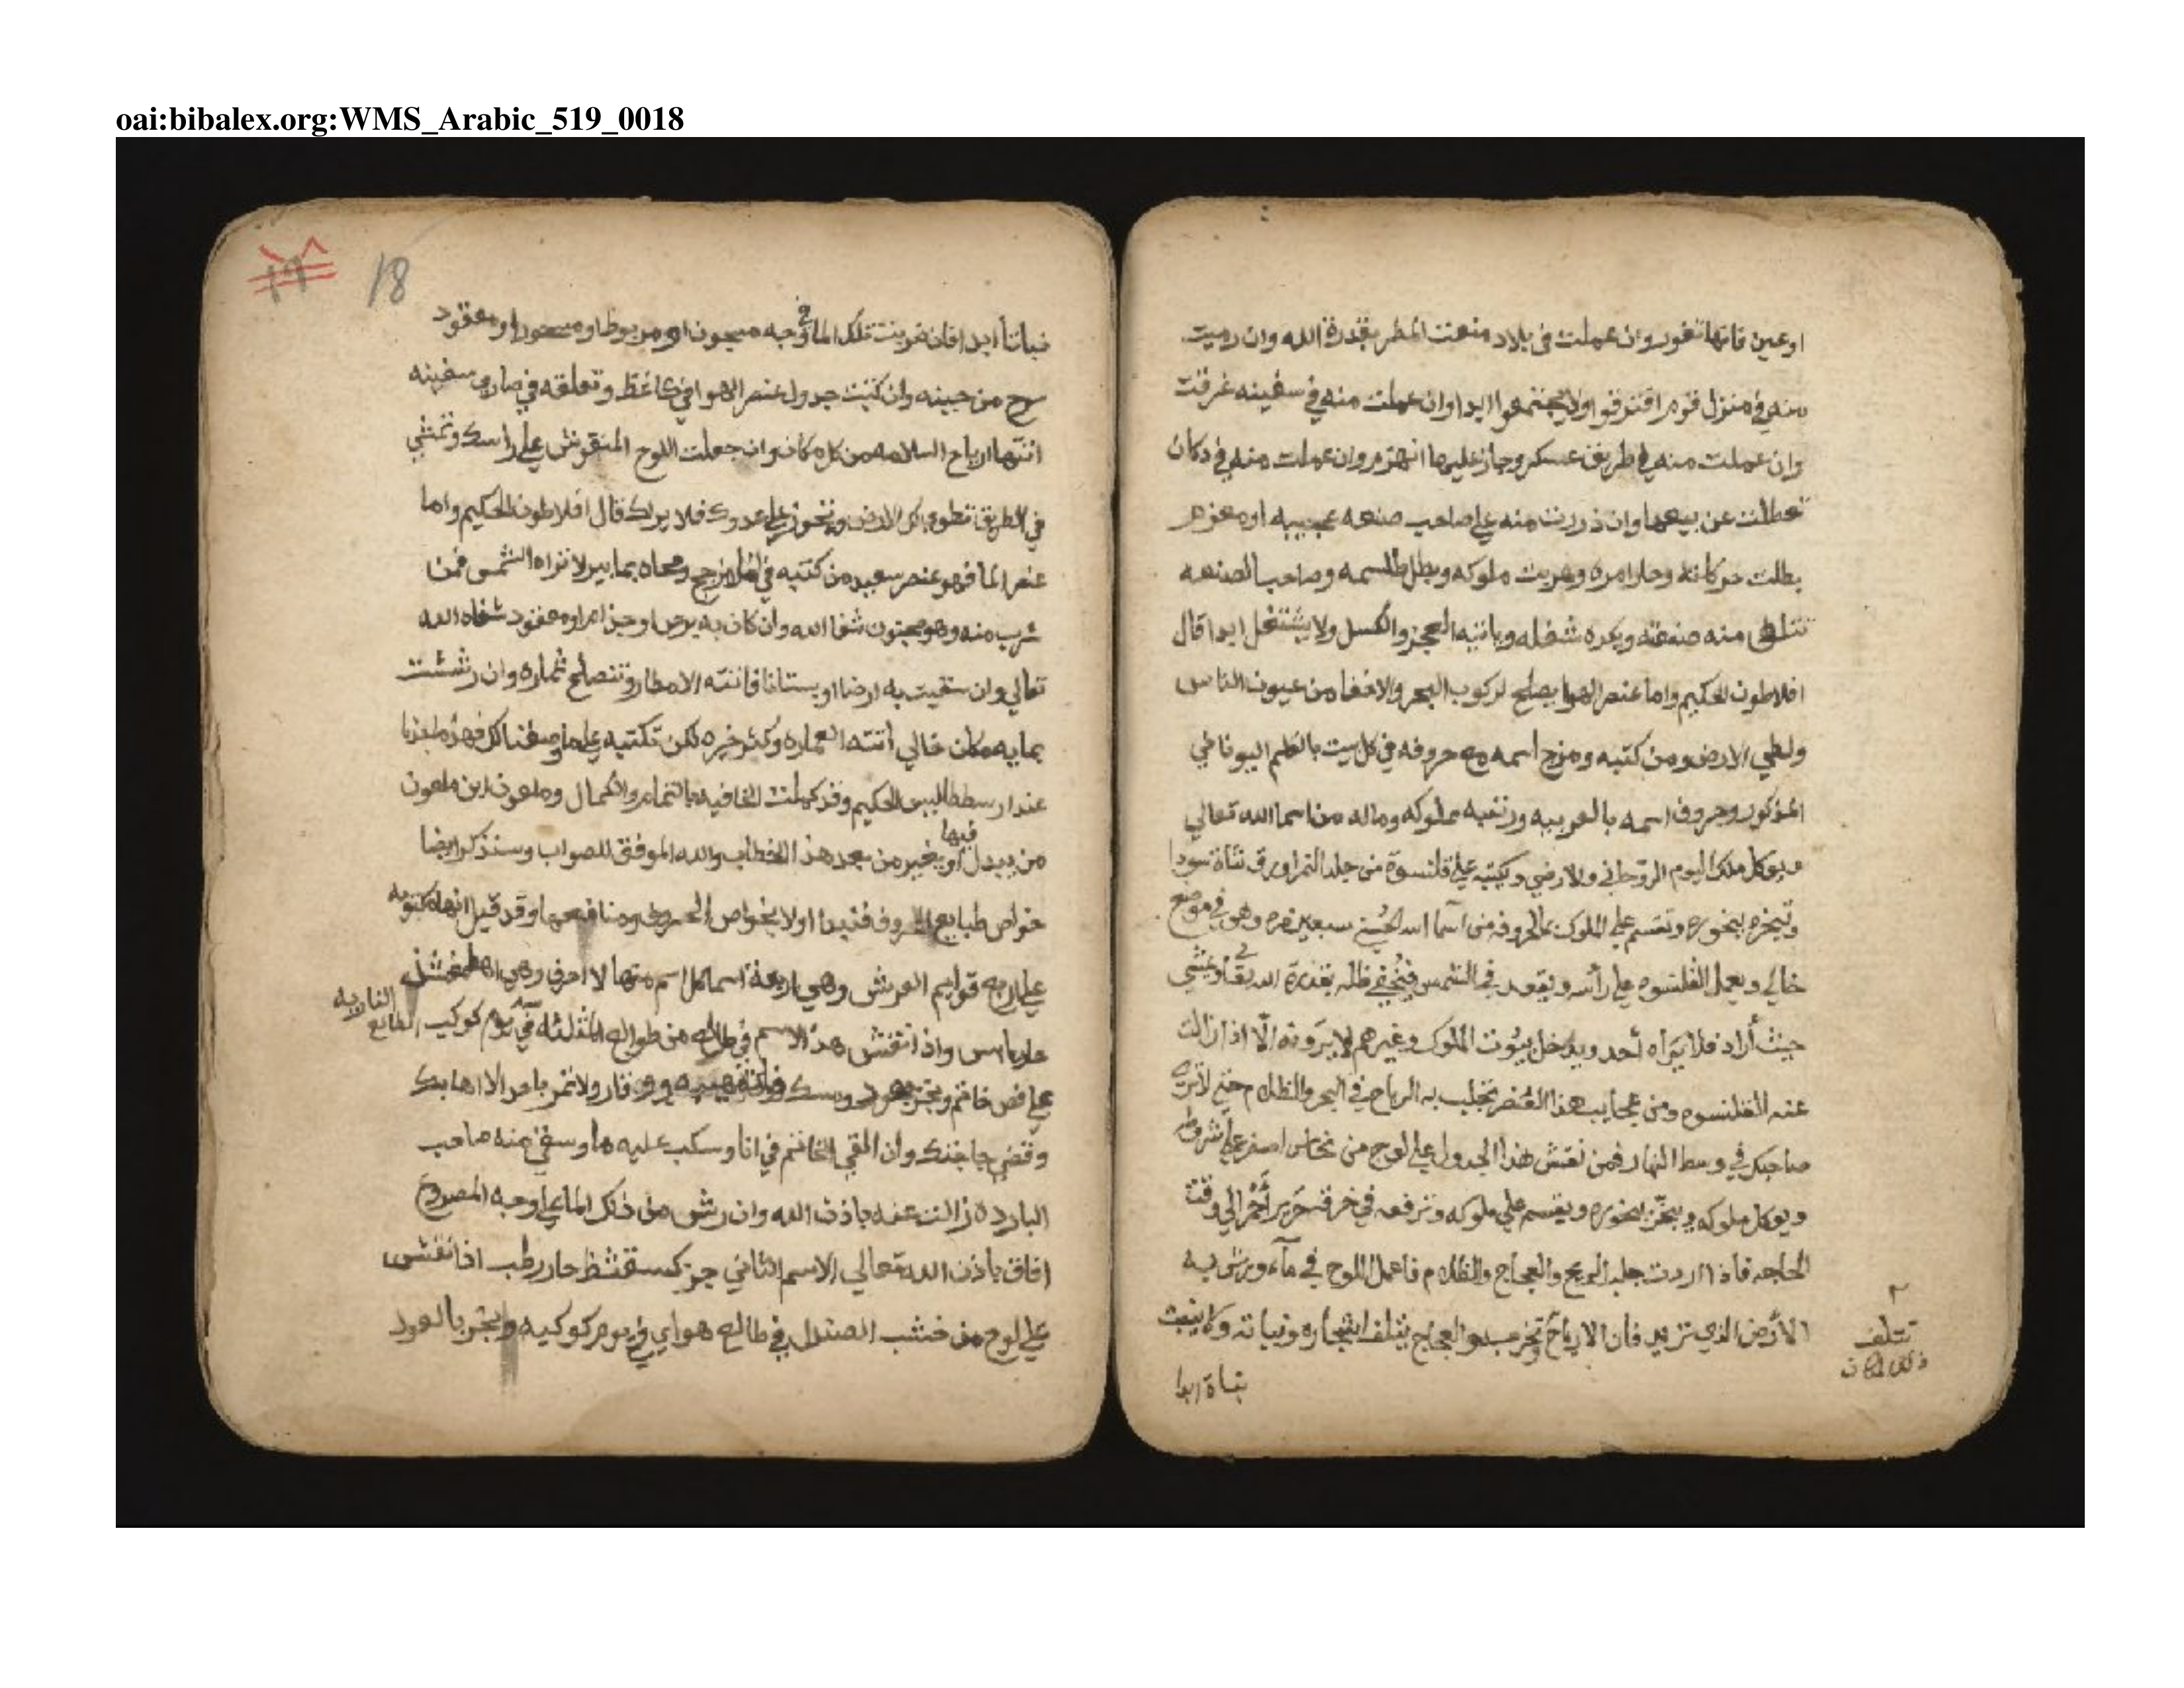 oai:bibalex.org:WMS_Arabic_519_0018
اوعين فانها تغور وان عملت في بلاد منعت المطر بقدرة الله وان رميت
منه في منزل قوم افترقوا ولا يجتمعوا ابدا وان عملت منه في سفينه غرقت
وان عملت منه في طريق عسكر وجاز عليها انهزم وان عملت منه في دكان
تعطلت عن بيعها وان ذررت منه علي صاحب صنعه عجيبه او معزم
بطلت حركاته وحار امره وهربت ملوكه وبطل طلسمه وصاحب الصنعه
منه صنعته ويكره شغله وياتيه العجز والكسل ولا يشتغل ابدا قال
افلاطون الحكيم واما عنصر الهوا يصلح لركوب البحر والاخفا من عيون الناس
ولطي الارض ومن كتبه ومزج اسمه مع حروفه في كل بيت بالقلم اليوناني
المذكور وحروف اسمه بالعربيه ورتبه ملوكه وماله من اسما الله تعالي
ويوكل ملك اليوم الروحاني والارضي ويكتبه علي قلنسوة من جلد النمر اورق شاة سودا
وتبخره ببخوره وتقسم علي الملوك بالحروفه من أسما الله الحسني سبعين مره وهو في موضع
خالي ويعمل القلنسوه علي رأسه ويقعد في الشمس فيختفي ظله بقدرة الله تعالي ويمشي
حيث أراد فلا يَراه أحد ويدخل بيُوت الملوك وغيرهم لا يَرونه الّا اذا زالت
عنه القلنسوه ومن عجايب هذا العُنصر تجلب به الرياح في البحر والظلام حتي لا تري
صاحبك في وسط النهار فمن نقش هذا الجدول علي لوح من نحاس اصفر علي شروطه
ويوكل ملوكه ويبخّر ببخوره ويقسم علي ملوكه وترفعه في خرقة حَرير أحْمر الي وقت
الحاجه فاذا اردت جلب الريح والعجاج والظلام فاعمل اللوح في مآء ويرش به
الأرض الذي تريد فان الارياح تخرب والعجاج يتلف اشجاره ونباته ولا ينبت
تتلف
نباتا ابدا
18
نباتاً ابدا فان ضربت تلك الما في وجه مسجون او مربوط او مسحور او معقود
سرح من حينه وان كتبت جدول عنصر الهوا في كاغظ وتعلقه في صاري سفينه
اتتها ارياح السلامه من كل مكان وان جعلت اللوح المنقوش علي راسك وتمشي
في الطريق تطوي لك الارض وتجوز علي عدوك فلا يراك قال افلاطون الحكيم واما
عنصر الما فهو عنصر سعيد من كتبه في ومحاه بما بير لا تراه الشمس فمن
شرب منه وهو مجنون شفا الله وان كان به برص او جذام او معقود شفاه الله
تعالي وان سقيت به ارضا او بستانا فاتته الامطار وتنصلح ثماره وان رششت
بمايه مكان خالي أتته العماره وكثر خيره لكن تكتبه علي ما وصفنا لك فهذه
عند ارسططاليس الحكيم وقد كملت الخافيه بالتمام والكمال وملعون ابن ملعون
من يبدل فيها أو يغير من بعد هذا الخطاب والله الموفق للصواب وسنذكر ايضا
خواص طبايع الحروف فنبدا اولا بخواص الحروف ومنافعها وقد قيل انها مكتوبه
علي اربع قوايم العرش وهي اربعة اسما كل اسم منها احرف وهي اهطمفشذ
النارية
حار يابس واذا نقش هذا الاسم في طالع من طوالع المثلثه في يوم كوكب الطالع
علي فص خاتم وبخر بعود ومسك ووقار ولا تمر باحد الا اهابك
وقضي حاجتك وان القي الخاتم في انا وسكب عليه ما وسقي منه صاحب
البارده زالت عنه باذن الله وان رش من ذلك الما علي وجه المصروع
افاق باذن الله تعالي الاسم الثاني جزكسقثظ حار رطب اذا نقش
علي لوح من خشب الصندل في طالع هوايي في يوم كوكبه وبخر بالعود